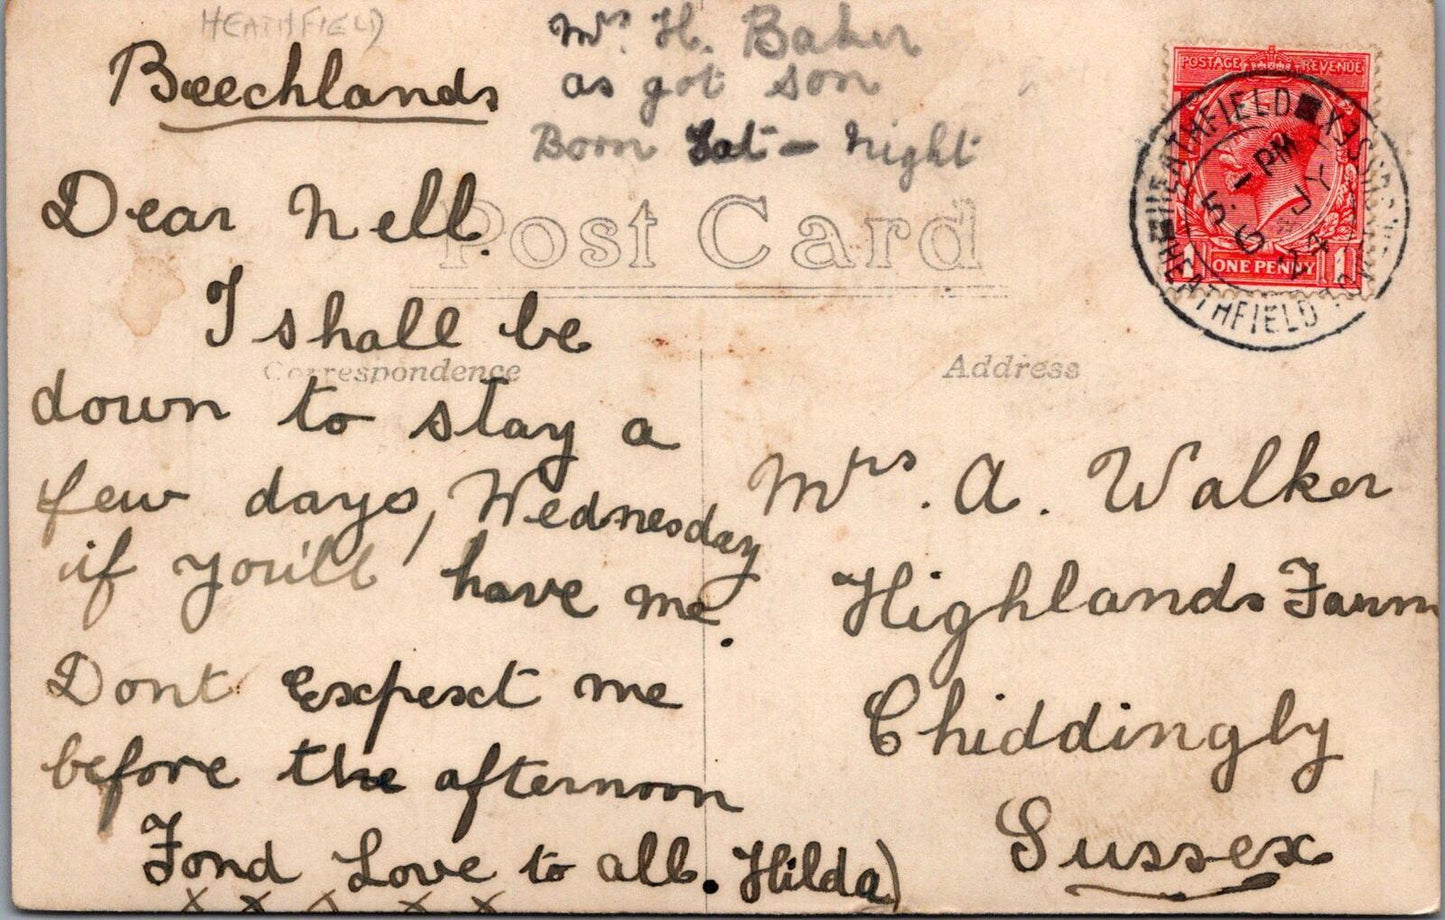 HEATHFIELD
Beechlands
Mrs. H. Baker
as got son
Born Sat - Night
POSTAGE REVENUE
HEATHFIELD SUSSEX
5. - PM
6 JY
24
HEATHFIELD
1 ONE PENNY 1
Post Card
Dear Nell.
I shall be
Correspondence
down to stay a
few days, Wednesday
if you'll have me.
Dont expect me
before the afternoon
Fond Love to all. Hilda)
x x x x x
Address
Mrs. A. Walker
Highlands Farm
Chiddingly
Sussex